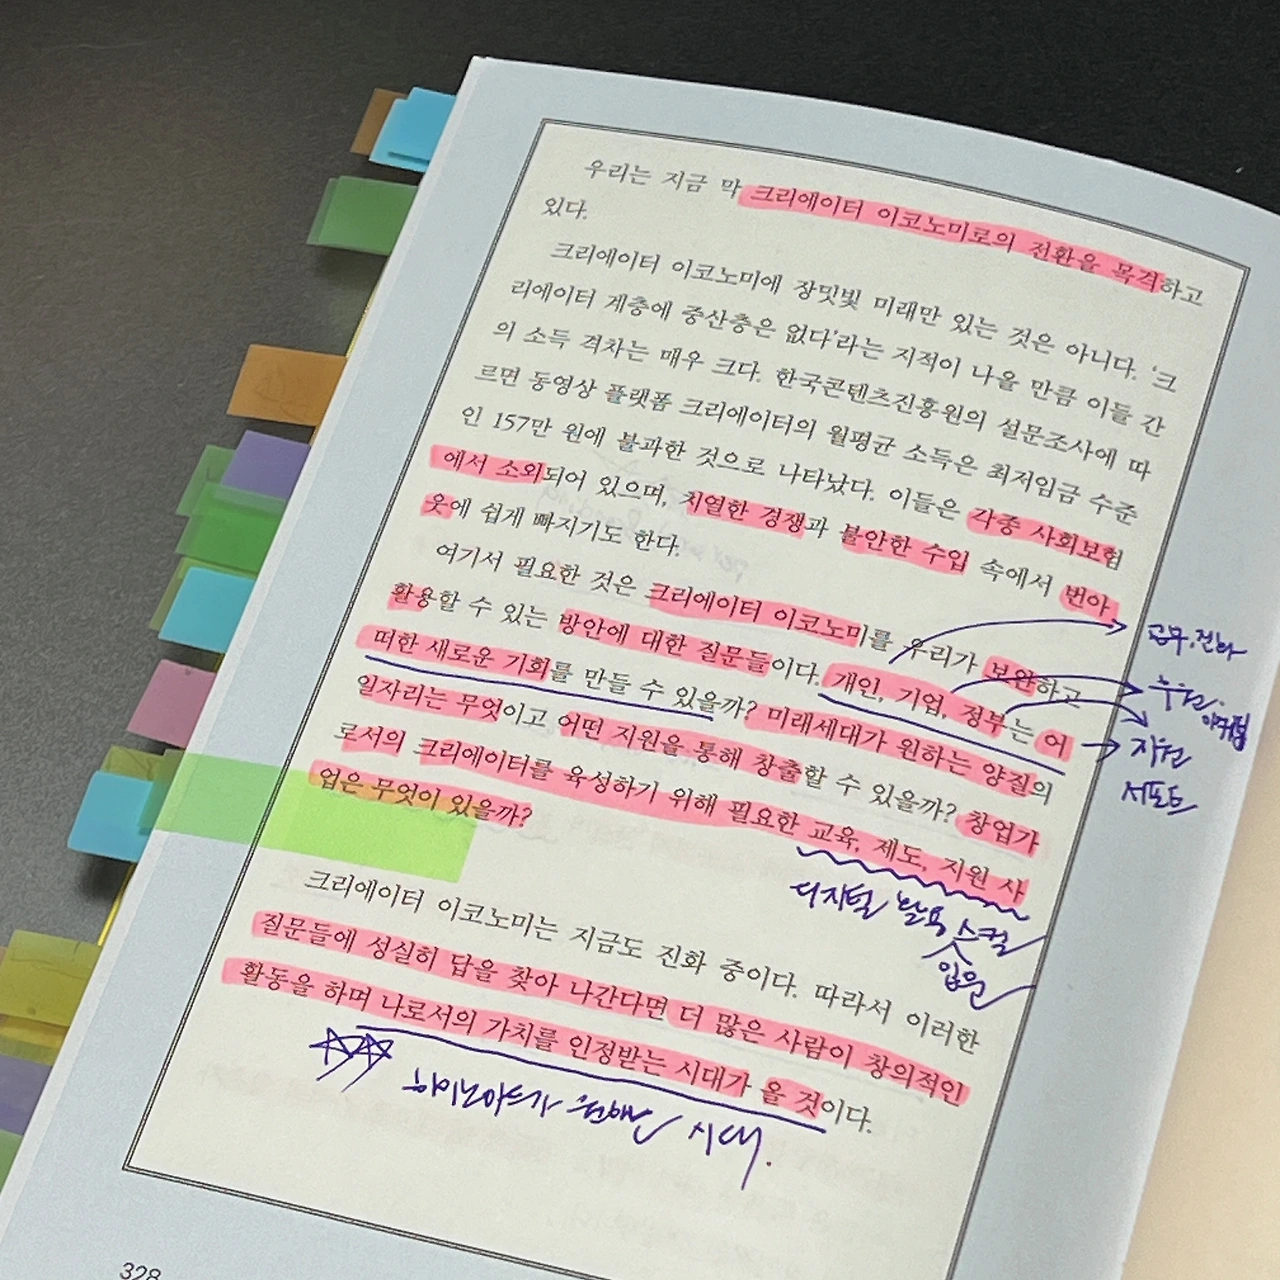 우리는 지금 막 크리에이터 이코노미로의 전환을 목격하고
있다.
크리에이터 이코노미에 장밋빛 미래만 있는 것은 아니다. ‘크
리에이터 계층에 중산층은 없다’라는 지적이 나올 만큼 이들 간
의 소득 격차는 매우 크다. 한국콘텐츠진흥원의 설문조사에 따
르면 동영상 플랫폼 크리에이터의 월평균 소득은 최저임금 수준
인 157만 원에 불과한 것으로 나타났다. 이들은 각종 사회보험
에서 소외되어 있으며, 치열한 경쟁과 불안한 수입 속에서 번아
웃에 쉽게 빠지기도 한다.
여기서 필요한 것은 크리에이터 이코노미를 우리가 보완하고
활용할 수 있는 방안에 대한 질문들이다. 개인, 기업, 정부는 어
떠한 새로운 기회를 만들 수 있을까? 미래세대가 원하는 양질의
일자리는 무엇이고 어떤 지원을 통해 창출할 수 있을까? 창업가
로서의 크리에이터를 육성하기 위해 필요한 교육, 제도, 지원 사
업은 무엇이 있을까?
지원
서포트
디지털 활용 스킬
크리에이터 이코노미는 지금도 진화 중이다. 따라서 이러한
질문들에 성실히 답을 찾아 나간다면 더 많은 사람이 창의적인
활동을 하며 나로서의 가치를 인정받는 시대가 올 것이다.
시대.
328